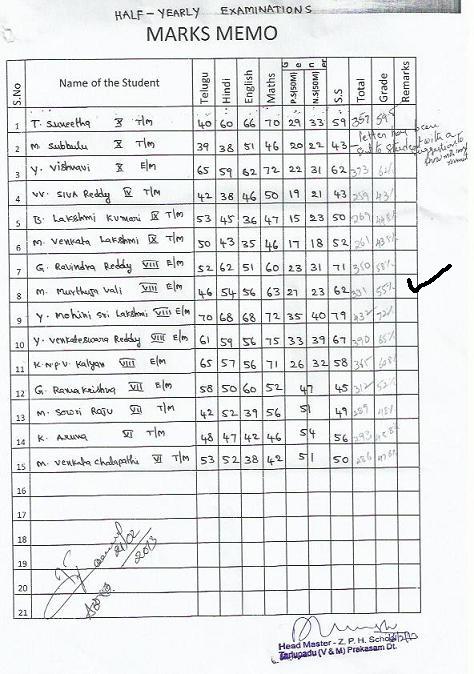 HALF-YEARLY EXAMINATIONS
MARKS MEMO
S.No Name of the Student Telugu Hindi English Maths Gener P.S(50M) N.S(50M) S.S Total Grade Remarks
1 T. Suneetha X T/M 40 60 66 70 29 33 59 357
2 M. Subbulu X T/M 39 38 51 46 20 22 43 letter
3 Y. Vishnavi X E/M 65 59 62 72 22 31 62 373
4 VV. Siva Reddy IX T/M 42 38 46 50 19 21 43 259 43%
5 B. Lakshmi Kumari IX T/M 53 45 36 47 15 23 50 269
6 M. Venkata Lakshmi IX T/M 50 43 35 46 17 18 52 261
7 G. Ravindra Reddy VIII E/M 52 62 51 60 23 31 71 350 58%
8 M. Murthuja Vali VIII E/M 46 54 56 63 27 23 62 331 55%
9 Y. Mohini Sri Lakshmi VIII E/M 70 68 68 72 35 40 79 432 72%
10 Y. Venkateswara Reddy VIII E/M 61 59 56 75 33 39 67 390 65%
11 K.N.P.V. Kalyan VIII E/M 65 57 56 71 26 32 58 365
12 G. Ramakrishna VII E/M 58 50 60 52 47 45 312 52%
13 M. Sowri Raju VII T/M 42 52 39 56 51 49 289 48%
14 K. Aruna VI T/M 48 47 42 46 54 56 293
15 M. Venkata Chalapathi VI T/M 53 52 38 42 51 50 286
16
17
18
19
20
21
21/02
2013
Head Master - Z. P. H. School
Tarlupadu (V & M) Prakasam Dt.